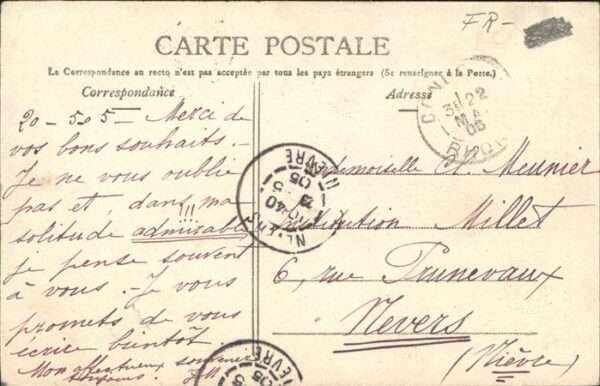 FR-
CARTE POSTALE
La Correspondance au recto n'est pas acceptée par tous les pays étrangers (Se renseigner à la Poste.)
Correspondance
Adresse
20-5-05- Merci de
vos bons souhaits.-
Je ne vous oublie
pas et, dans ma
solitude admirable!!!
je pense souvent
à vous.- Je vous
promets de vous
écrire bientôt.
Mon affectueux souvenir
toujours. J.M.
Mademoiselle A. Meunier
Institution Millet
6, rue Prunevaux
Nevers
(Nièvre)
NEVERS
NIEVRE
10 40
05
22
MAI
05
IEVRE